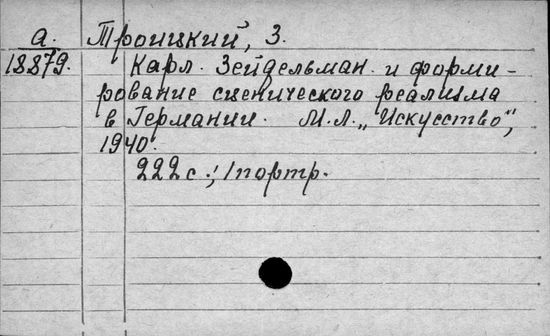 а. Троицкий, З.
18879. Карл Зейдельман и форми-
рование сценического реализма
в Германии. М.Л. „Искусство",
1940.
222 с.; 1 портр.